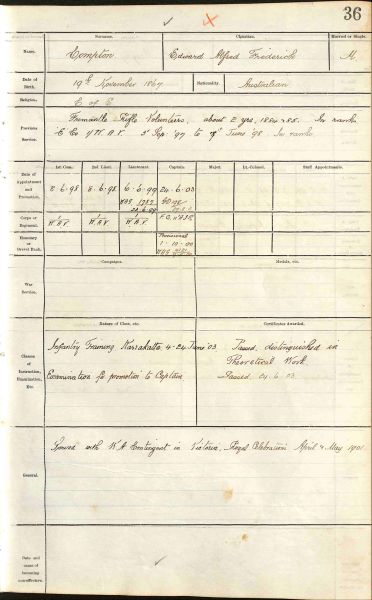 36
Surname. Christian. Married or Single.
Name. Compton Edward Alfred Frederick M
Date of Birth. 19th November 1867 Nationality. Australian
Religion. C of E
Previous Service. Fremantle Rifle Volunteers, about 2 yrs, 1884 &85. In ranks
"C" Co 1/W.A.V. Sep. '97 to June '98. In ranks
Date of Appointment and Promotion. 1st Com. 2nd Lieut. Lieutenant. Captain. Major. Lt.-Colonel. Staff Appointments.
8-6-98 8-6-98 6-6-99 24-6-03
Corps or Regiment. W.A.V. W.A.V. W.A.V.
Honorary or Brevet Rank. Provisional
1-10-00
War Service. Campaigns. Medals, etc.
Classes of Instruction, Examination, Etc. Nature of Class, etc. Certificates Awarded.
Infantry Training Karrakatta 4-24 June '03 Passed, distinguished in
Theoretical Work
Examination for promotion to Captain Passed 24.6.03
General. Served with W.A. Contingent in Victoria, Royal Celebrations April & May 1901
Date and cause of becoming non-effective.